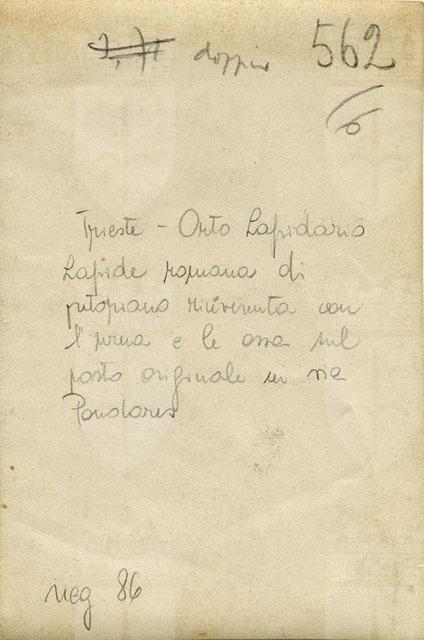 doppio 562
6
Trieste - Orto Lapidario
Lapide romana di
rinvenuta con
l'urna e le ossa sul
posto originale in via
Pondares
neg 86